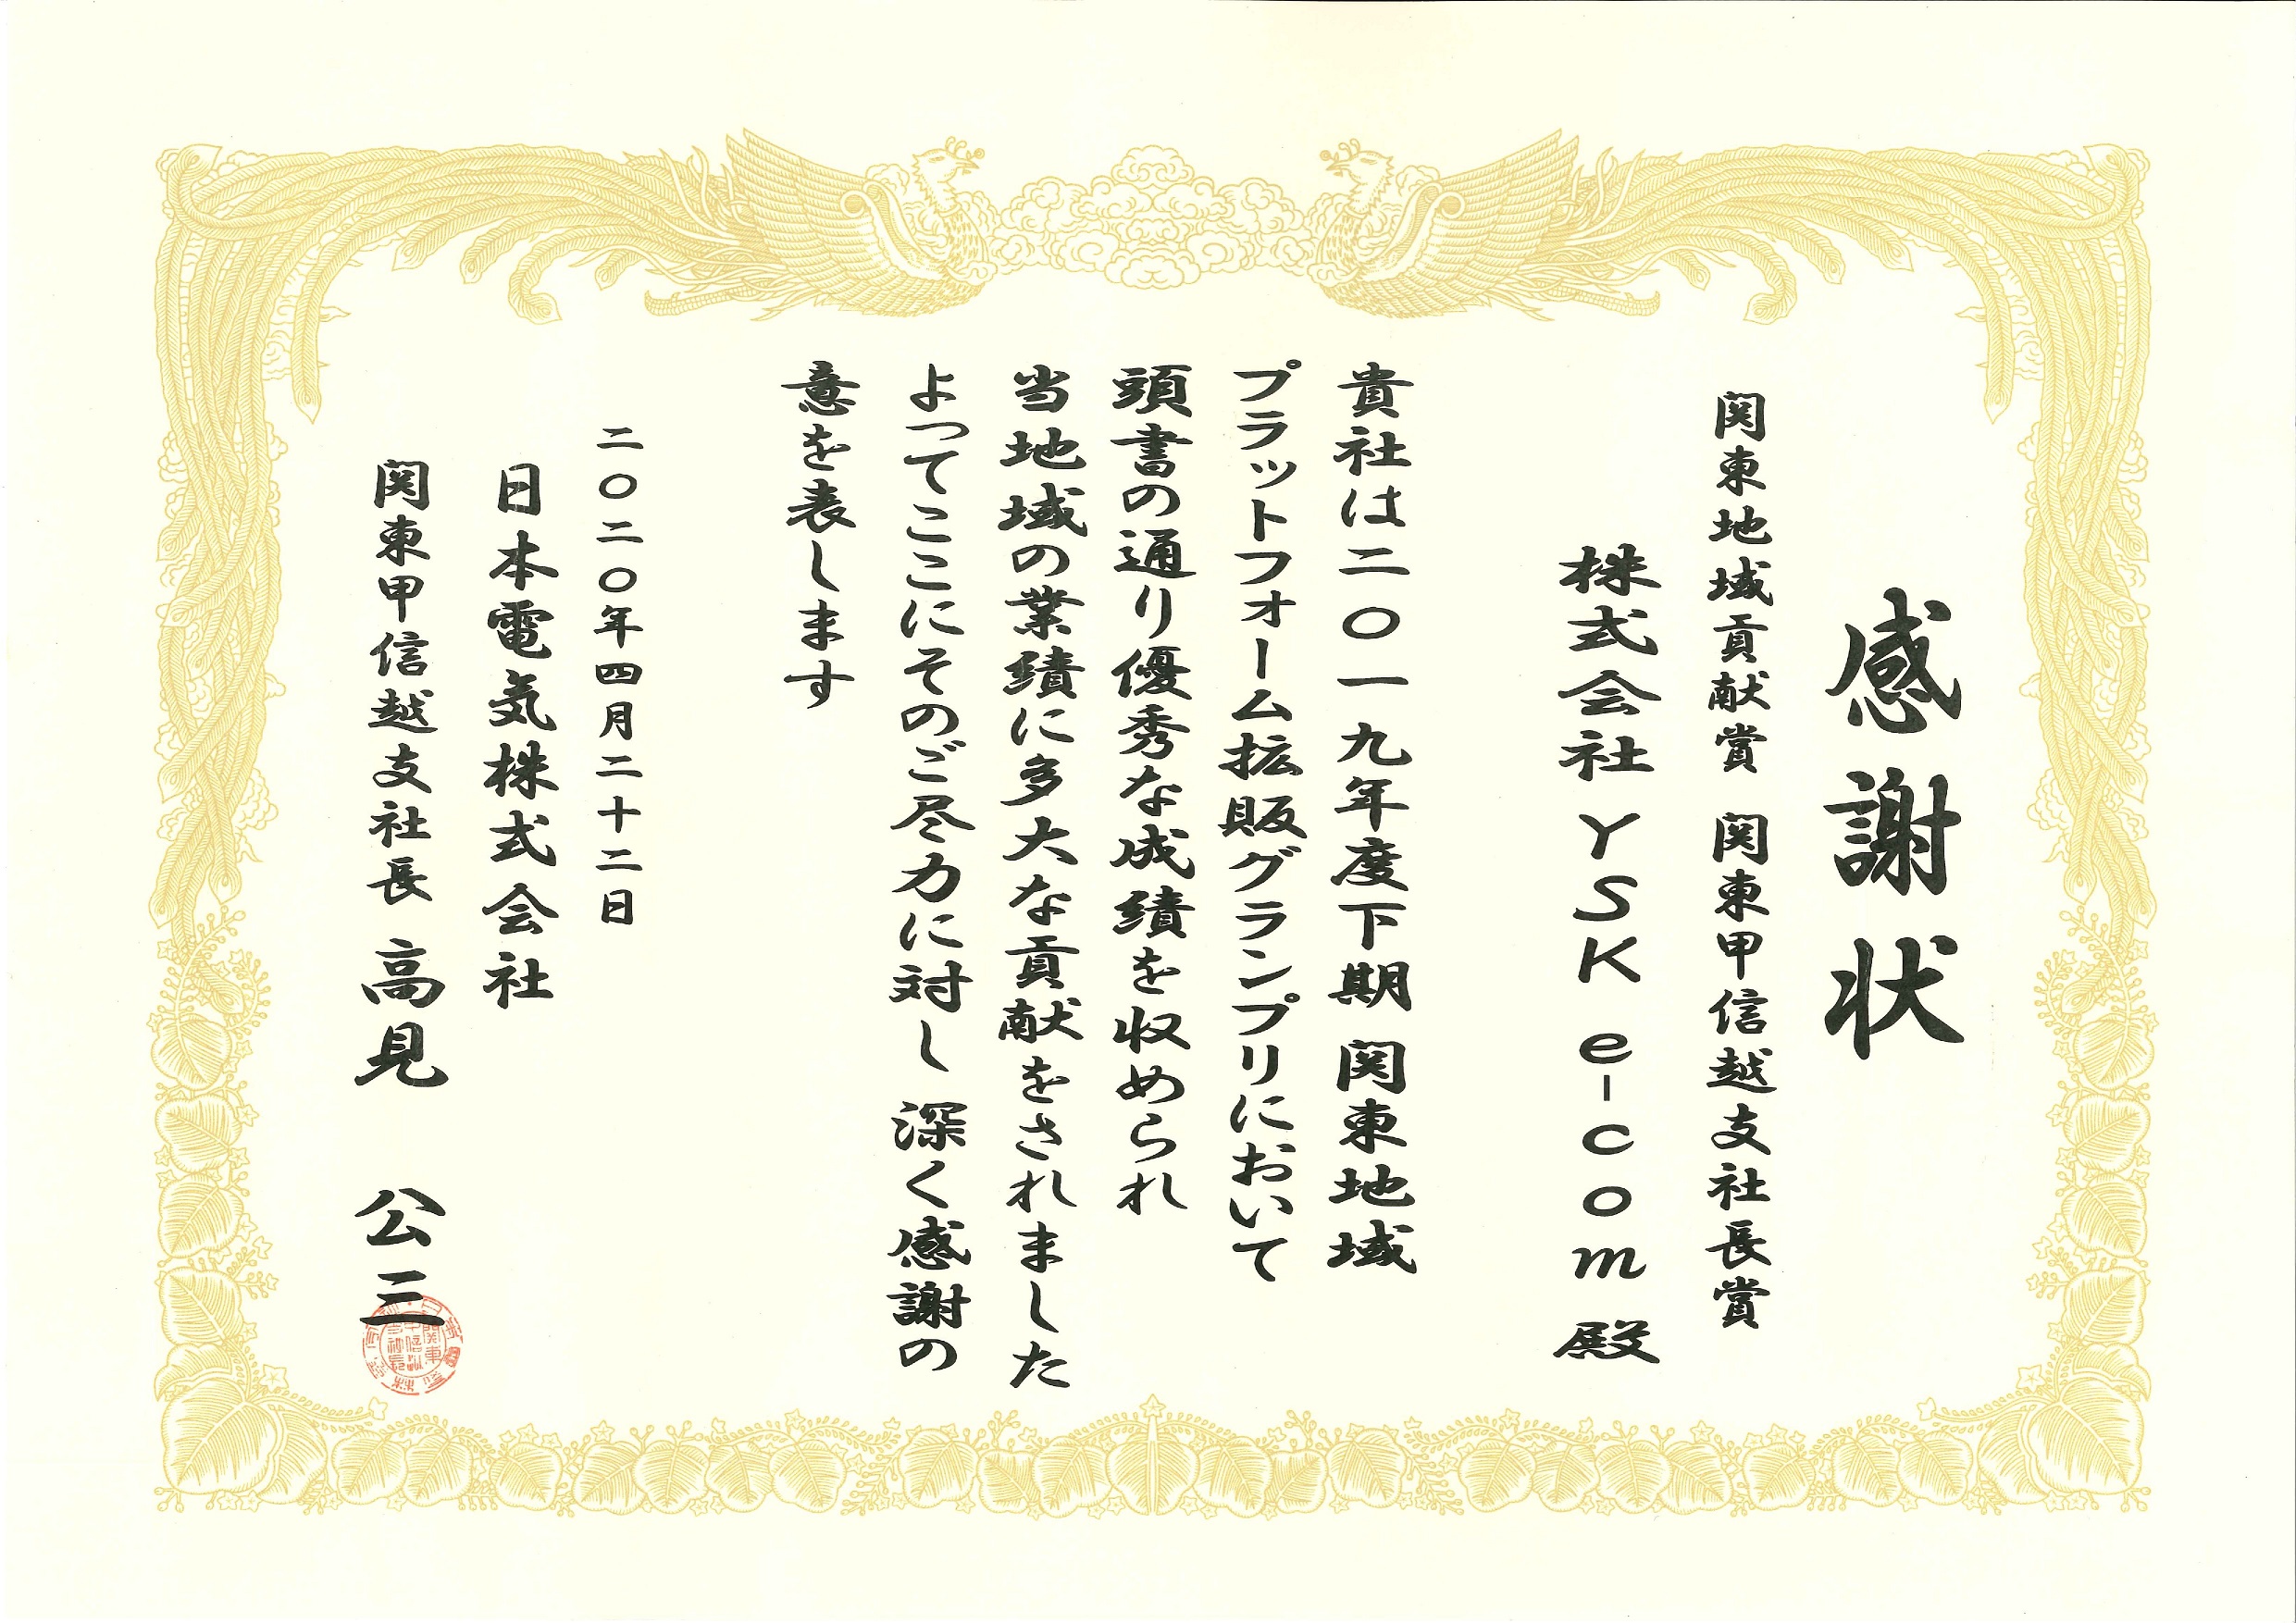 感謝状
関東地域貢献賞 関東甲信越支社長賞
株式会社YSK e-com殿
貴社は二〇一九年度下期 関東地域
プラットフォーム拡販グランプリにおいて
頭書の通り優秀な成績を収められ
当地域の業績に多大な貢献をされました
よってここにそのご尽力に対し 深く感謝の
意を表します
二〇二〇年四月二十二日
日本電気株式会社
関東甲信越支社長 高見 公三